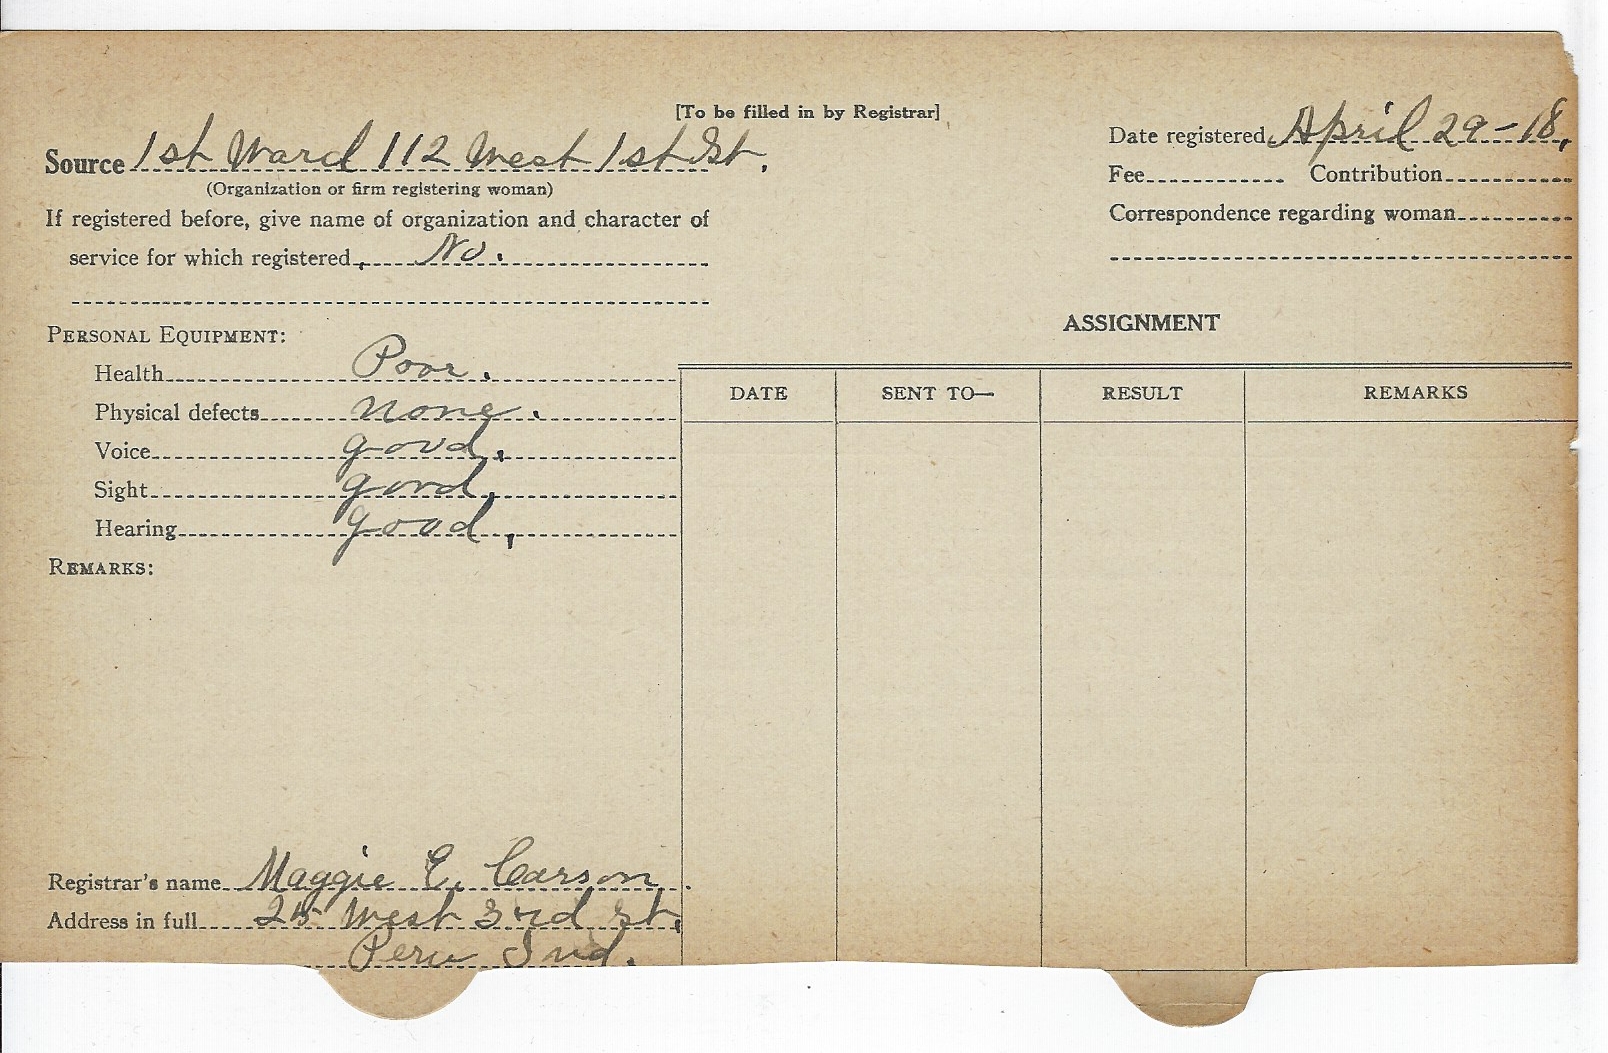 [To be filled in by Registrar]
Source 1st Ward 112 West 1st St.
(Organization or firm registering woman)
If registered before, give name of organization and character of
service for which registered, No.
Date registered April 29-18,
Fee Contribution
Correspondence regarding woman
PERSONAL EQUIPMENT:
Health Poor.
Physical defects none.
Voice good.
Sight good,
Hearing good,
REMARKS:
Registrar's name Maggie E. Carson.
Address in full 25 West 3rd St.
Peru Ind.
ASSIGNMENT
DATE SENT TO— RESULT REMARKS